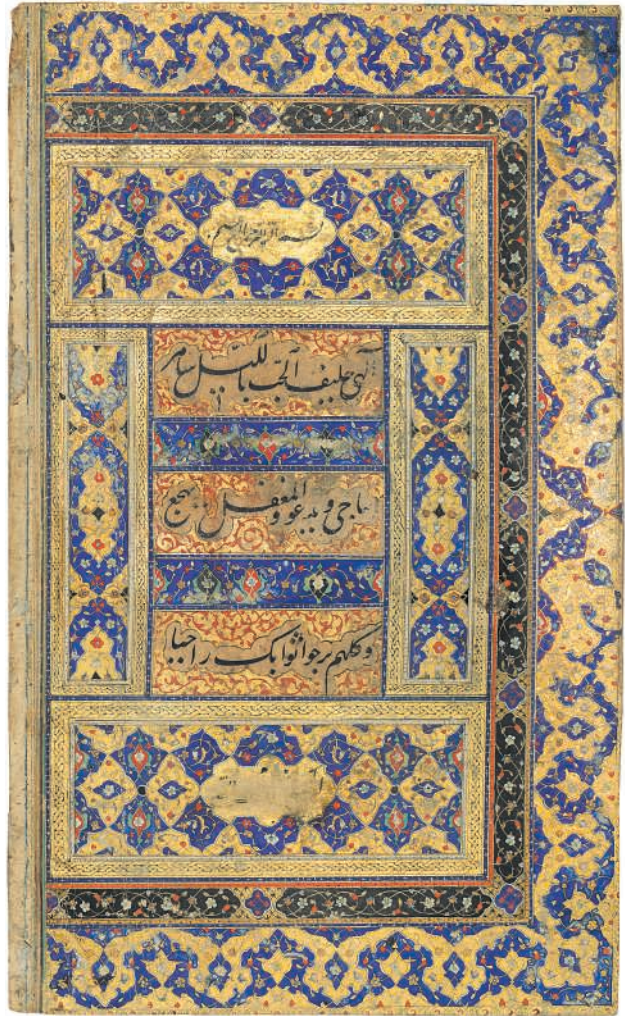 بسم الله الرحمن الرحيم
الهي حليف الحب بالليل سامر
يناجي و يدعو و المغفل يهجع
و كلهم يرجو اثوابك راجيا